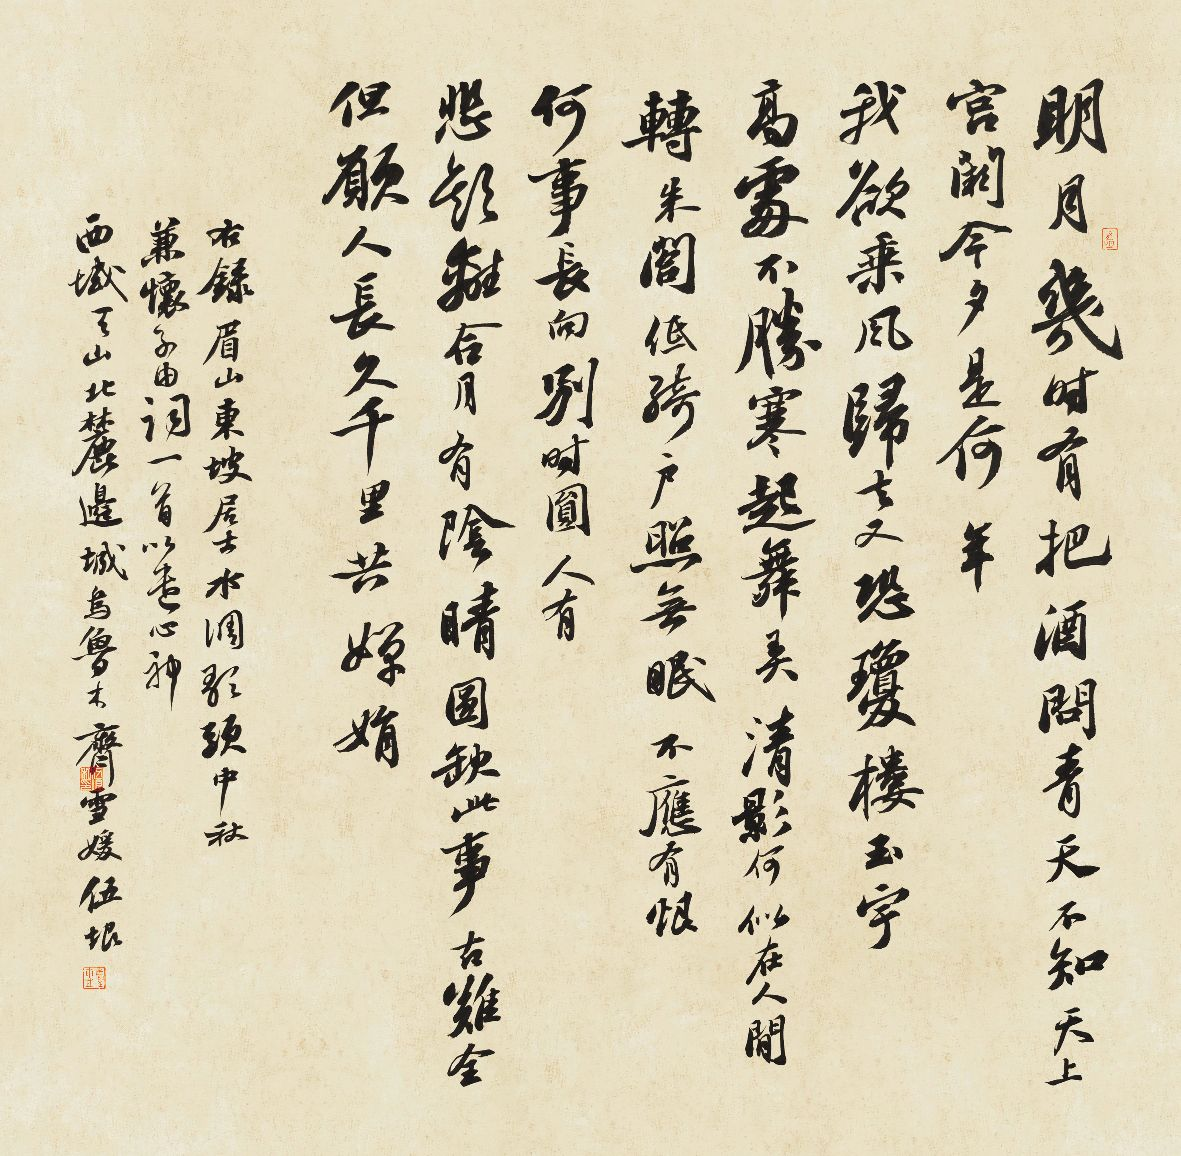 明月幾时有把酒問青天不知天上
宫闕今夕是何年
我欲乘风歸去又恐瓊樓玉宇
高處不勝寒起舞弄清影何似在人間
轉朱閣低綺户照無眠不應有恨
何事長向別时圓人有
悲歡離合月有陰晴圓缺此事古難全
但願人長久千里共嬋娟
右録眉山東坡居士水調歌頭中秋
兼懷子由詞一首以心神
西域天山北麓邊城烏魯木齊雪媛伍垠